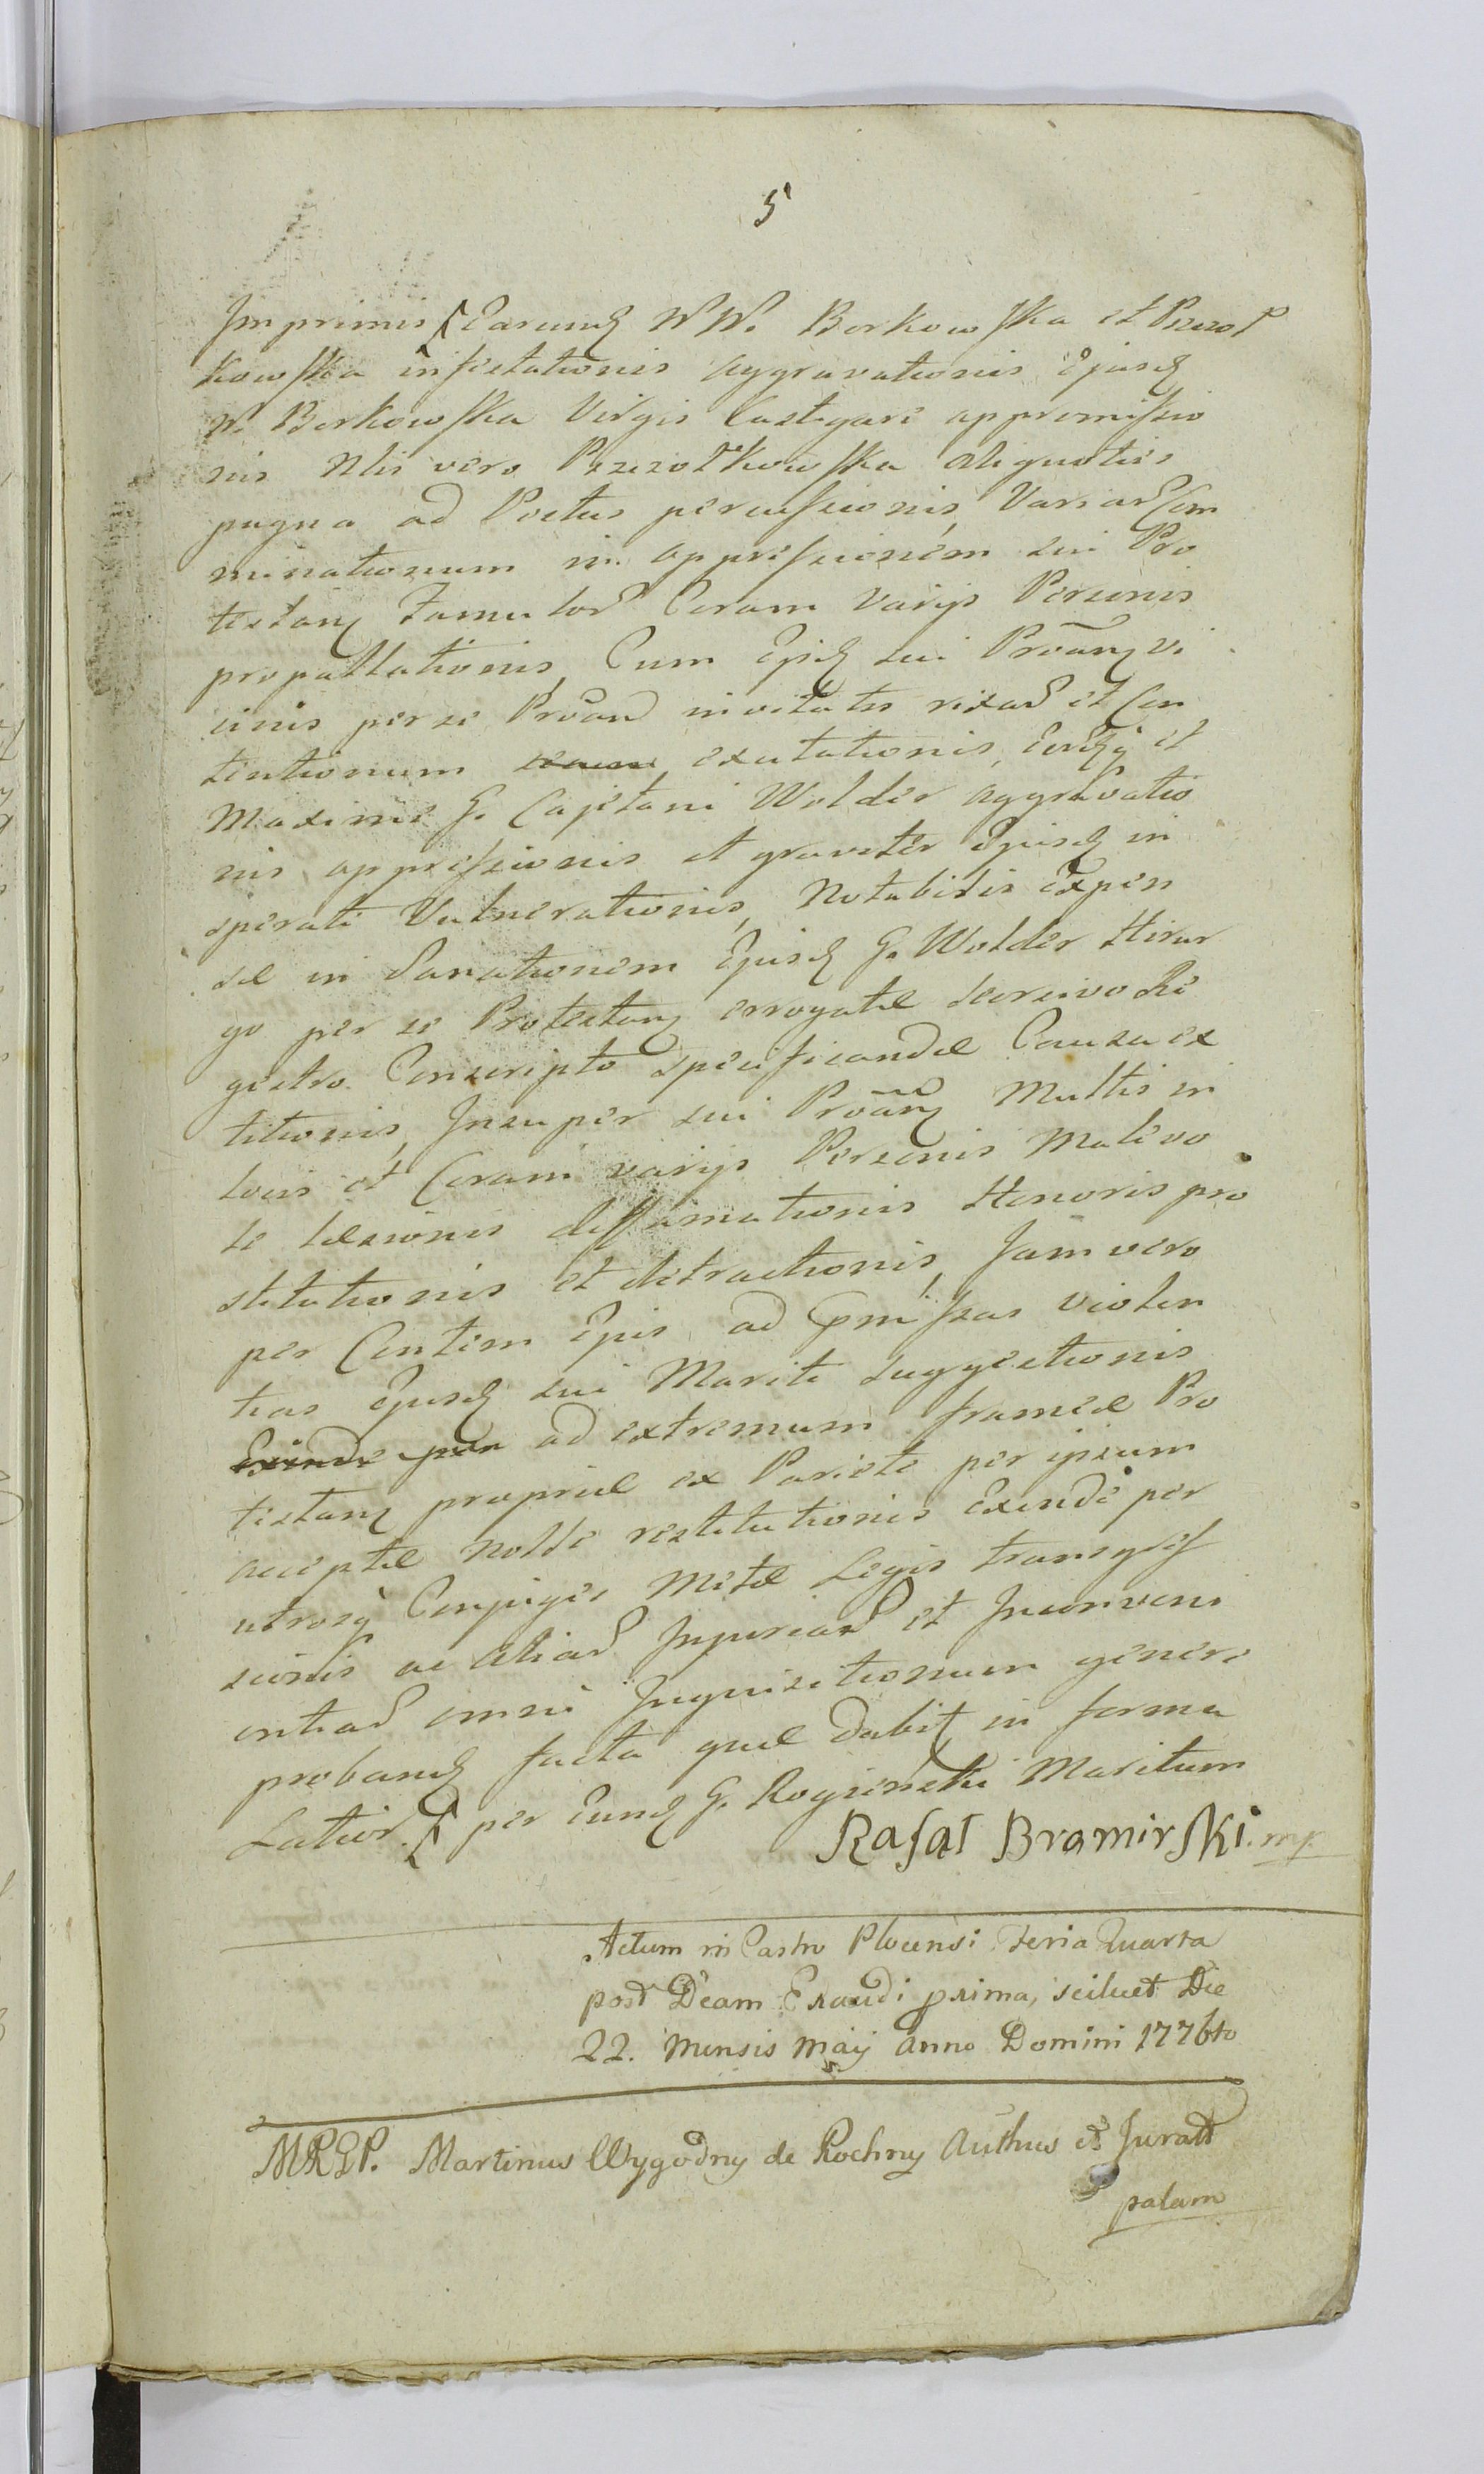 5
Imprimis ʃ Earund W W. Borkowska et Przezoł
kowska infestationis aggravationis Ejusd
W. Borkowska Virgis Castigari appromissio
nis Nlis vero Przezołkowska aliquoties
pugno ad Pectus percussionis, Variar Com
minationum in oppressionem sui Pro
testan Famulor Coram varijs Personis
propallationis, Cum Ejusd sui Proan vi
cinis per se Proan invitatis rixar et Con
tentionum excitationis, Eorq et
Maxime G. Cajetani Wolder aggravatio
nis, oppressionis et graviter Ejusd in
sperati Vulnerationis, Notabilis Expen
sæ in Sanationem Ejusd G. Wolder Hirur
go per se Protestan errogatæ seorsivo Re
gestro Conscripto specificandæ Causa ex
titionis, Insuper sui Proan Multis in
locis et Coram varijs Personis Malevo
le læsionis deffamationis Honoris pro
stitutionis et detractionis, Jam vero
per Conten Ejus, ad præmissas violen
tias Ejusd sui Mariti suggestionis
Exinde per ad extremum frameæ Pro
testan propriæ ex Pariete per ipsum
acceptæ Nolle restitutionis Exinde per
utrosq Conjuges Metæ Legis transgres
sionis ac Aliar Injuriar et Inconveni
entiar omni Inquisitionum genere
proband facta quæ dabit in forma
Latior. ʃ per Eund G. Rogienski Maritum
Rafał Bramirski mp.
Actum in Castro Plocensi Feria Quarta
post Dcam Exaudi prima, scilicet Die
22. Mensis Maij Anno Domini 1776to
MRGP. Martinus Wygodny de Rochny Authus et Juratt
palam